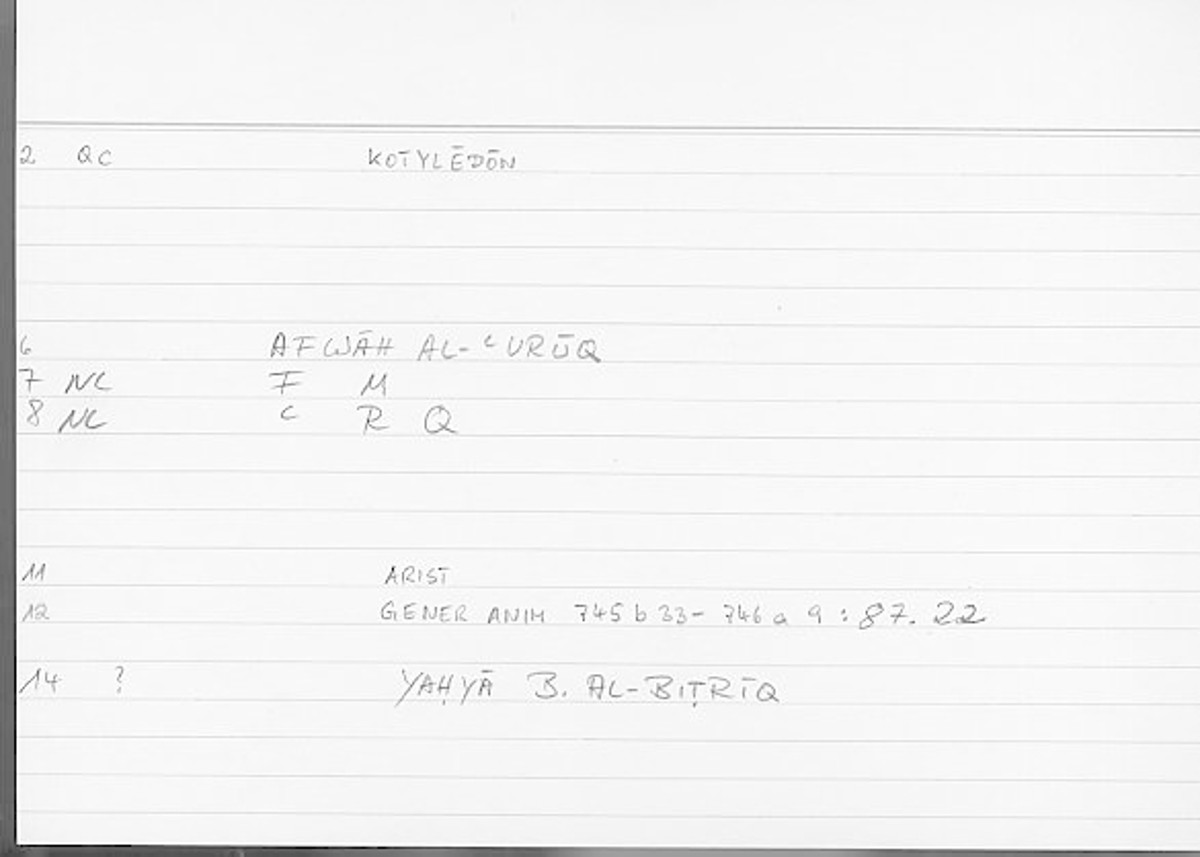 2 QC KOTYLĒDŌN
6 AFWĀH AL-ʿURŪQ
7 NC F M
8 NC ʿ R Q
11 ARIST
12 GENER ANIM 745 b 33 - 746 a 9 : 87. 22
14 ? YAḤYĀ B. AL-BIṬRĪQ